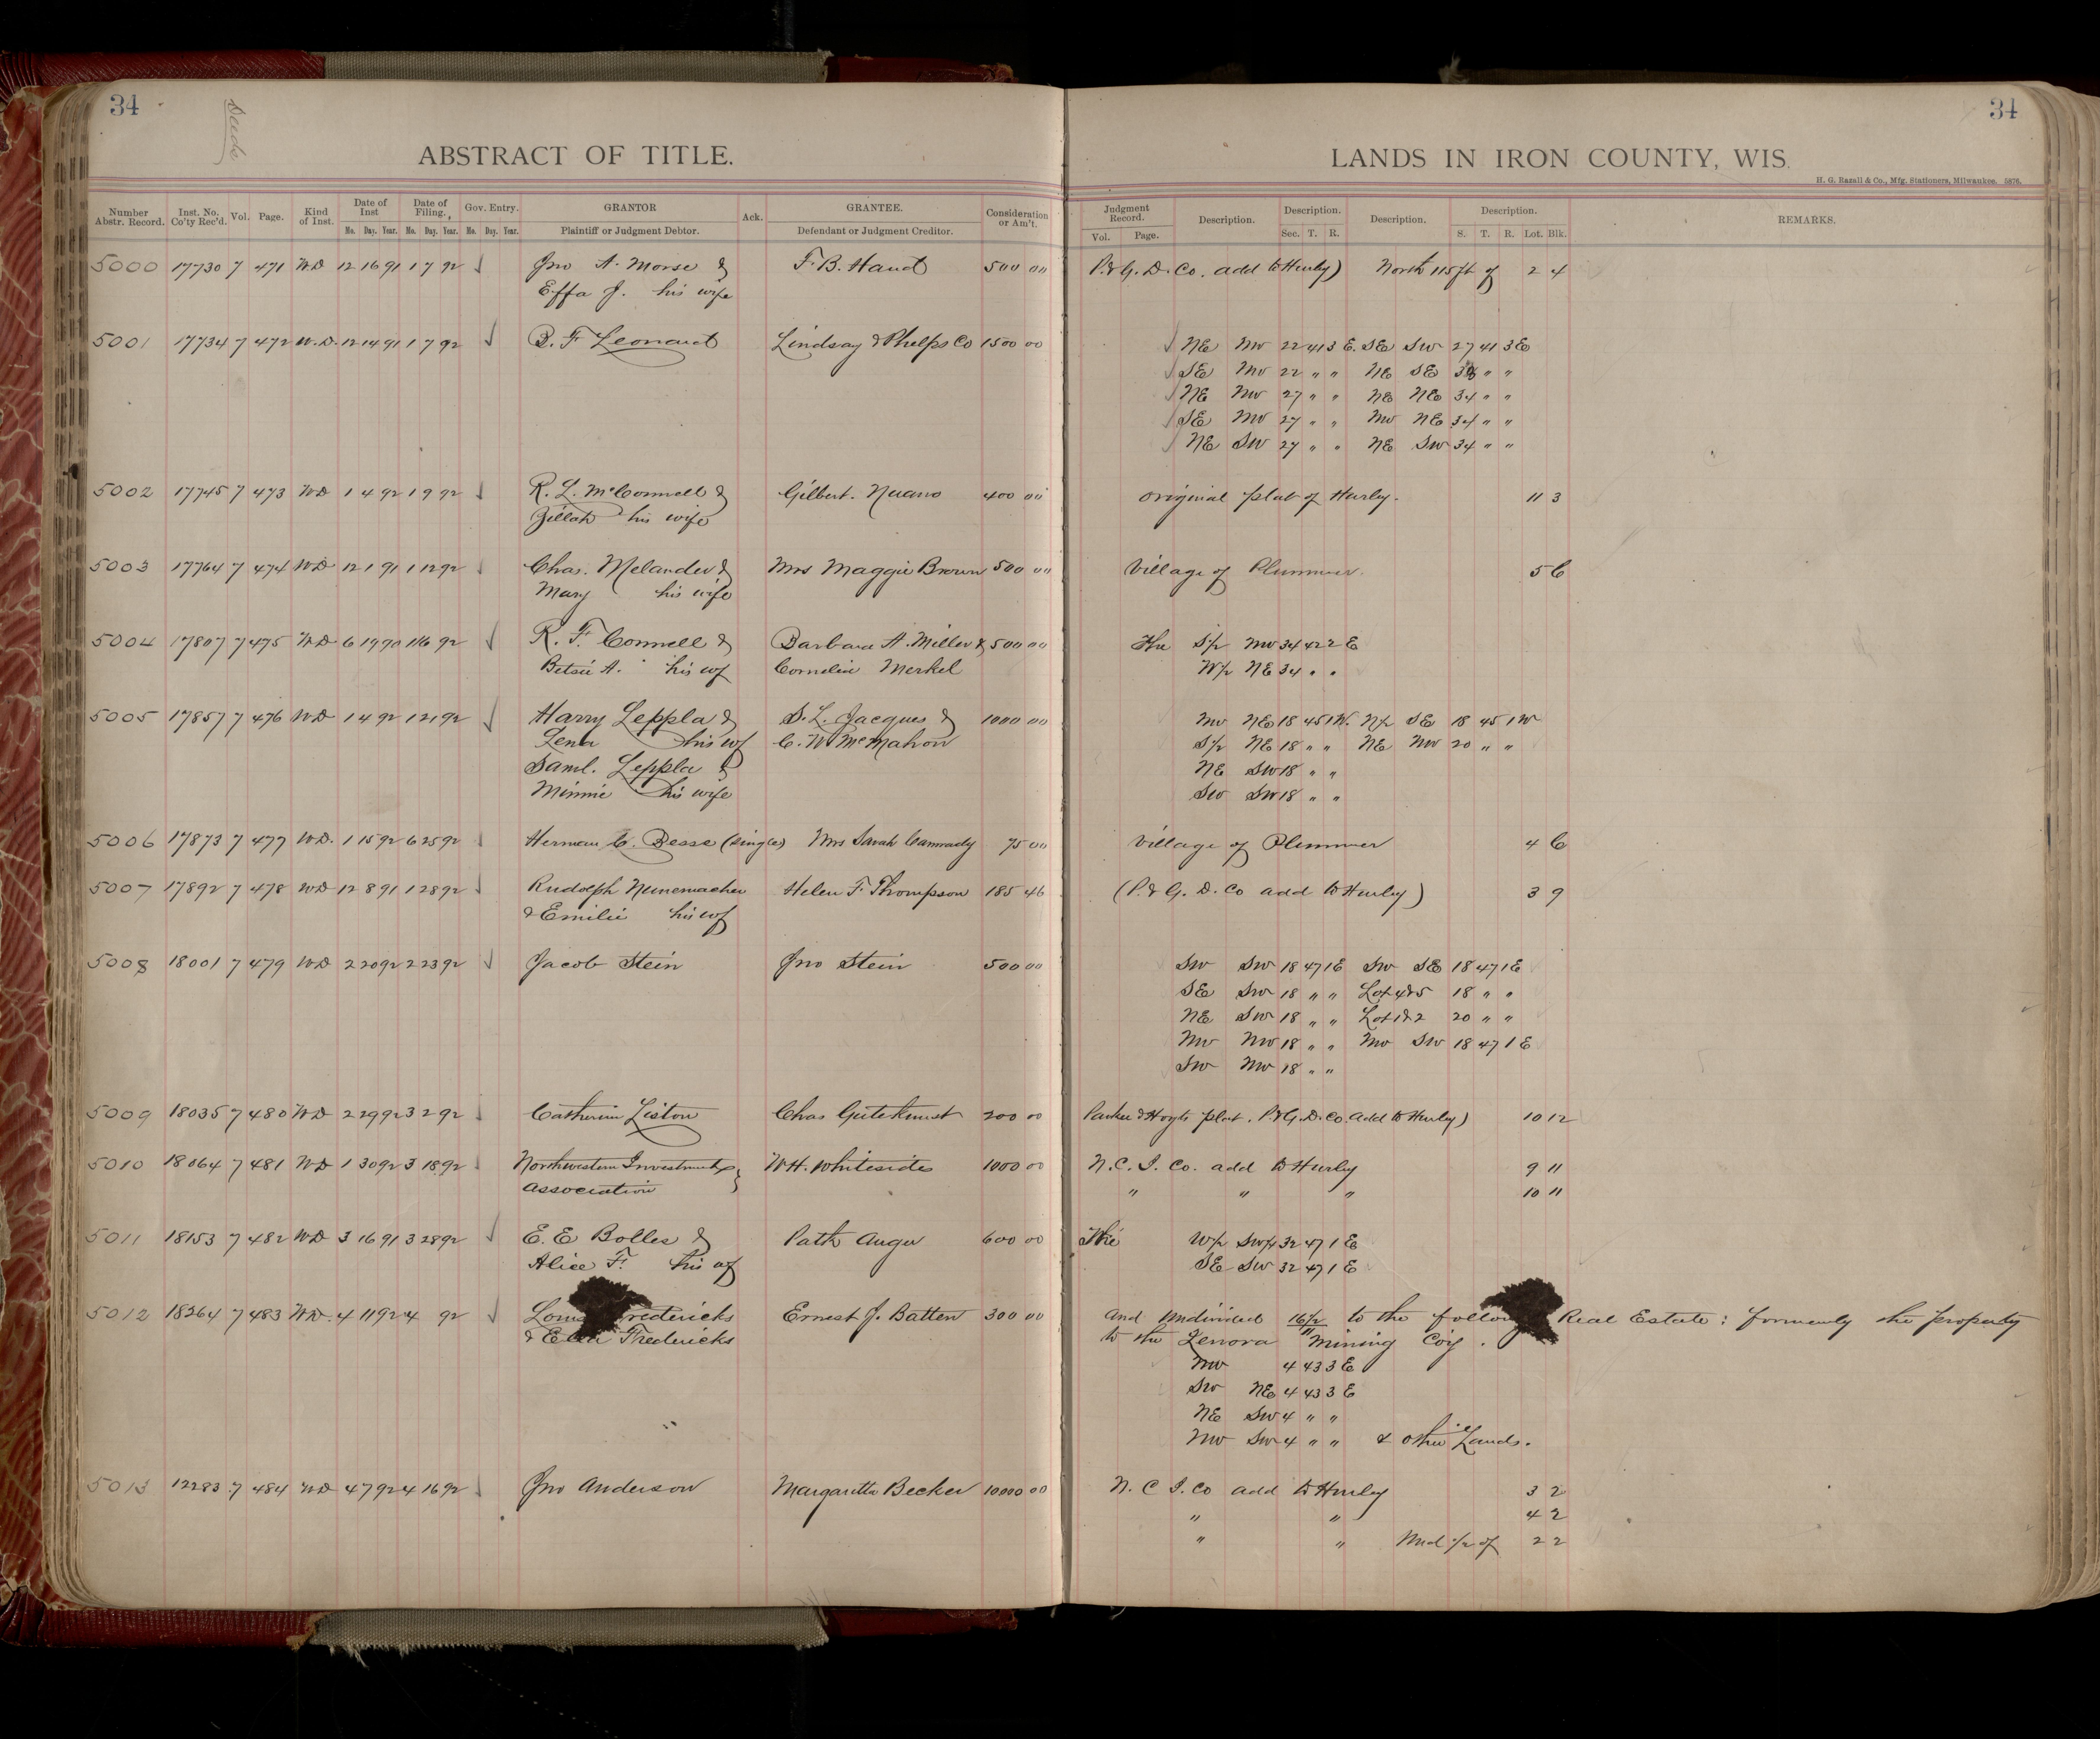 34
Deeds
ABSTRACT OF TITLE.
Number Abstr. Record. Inst. No. Co'ty Rec'd. Vol. Page. Kind of Inst. Date of Inst Mo. Day. Year. Date of Filing. Mo. Day. Year. Gov. Entry. Mo. Day. Year. GRANTOR Plaintiff or Judgment Debtor. Ack. GRANTEE. Defendant or Judgment Creditor. Consideration or Am't.
5000 17730 7 471 WD 12 16 91 1 7 92 Jno A. Morse & F. B. Hand 500 00
Effa J. his wife
5001 17734 7 472 W.D. 12 14 91 1 7 92 B. F Leonard Lindsay & Phelps Co 1500 00
5002 17745 7 473 WD 1 4 92 1 9 92 R. L. McConnell & Gilbert. 400 00
Zillah his wife
5003 17764 7 474 WD 12 1 91 1 12 92 Chas. Melander & Mrs Maggie Brown 500 00
Mary his wife
5004 17807 7 475 WD 6 19 90 1 16 92 R. F. Connell & Barbara A. Miller & 500 00
Betsie A. his wf Cornelia Merkel
5005 17857 7 476 WD 1 4 92 1 21 92 Harry Leppla & S. L. Jacques & 1000 00
Lena his wf C. W McMahon
Saml. Leppla &
Minnie his wife
5006 17873 7 477 WD. 1 15 92 6 25 92 Herman C. Besse (single) Mrs Sarah 75 00
5007 17892 7 478 WD 12 8 91 1 28 92 Rudolph Nunemacher Helen F. Thompson 185 46
& Emilie his wf
5008 18001 7 479 WD 2 20 92 2 23 92 Jacob Stein Jno Stein 500 00
5009 18035 7 480 WD 2 29 92 3 2 92 Catherine Liston Chas Gutekunst 200 00
5010 18064 7 481 WD 1 30 92 3 18 92 Northwestern Investment W H. Whitesides 1000 00
Association
5011 18153 7 482 WD 3 16 91 3 28 92 E. E Bolles & Path Auger 600 00
Alice F. his wf
5012 18264 7 483 WD. 4 11 92 4 92 Fredericks Ernest J. Batten 300 00
& Fredericks
5013 12283 7 484 WD 4 7 92 4 16 92 Jno Anderson Margaretta Becker 10000 00
34
LANDS IN IRON COUNTY, WIS.
H. G. Razall & Co., Mfg. Stationers, Milwaukee. 5876.
Judgment Record. Vol. Page. Description. Description. Sec. T. R. Description. Description. S. T. R. Lot. Blk. REMARKS.
P. & G. D. Co. add to Hurley) North 115 ft of 2 4
NE NW 22 41 3 E. SE SW 27 41 3 E
SE NW 22 " " NE SE " "
NE NW 27 " " NE NE 34 " "
SE NW 27 " " NW NE 34 " "
NE SW 27 " " NE SW 34 " "
original plat of Hurley. 11 3
Village of Plummer. 5 C
The S½ NW 34 42 2 E
W½ NE 34 " "
NW NE 18 45 1 W. N½ SE 18 45 1 W
S½ NE 18 " " NE NW 20 " "
NE SW 18 " "
SW SW 18 " "
Village of Plummer 4 C
(P. & G. D. Co add to Hurley) 3 9
SW SW 18 47 1 E SW SE 18 47 1 E
SE SW 18 " " Lot 4&5 18 " "
NE SW 18 " " Lot 1&2 20 " "
NW NW 18 " " NW SW 18 47 1 E
SW NW 18 " "
Parker & Hoyts plat. P. & G. D. Co. add to Hurley) 10 12
N. C. I. Co. add to Hurley 9 11
" " " 10 11
The W½ SW¼ 32 47 1 E
SE SW 32 47 1 E
and undivided to the Real Estate: formerly the property
to the Lenora Mining Coy.
NW 4 43 3 E
SW NE 4 43 3 E
NE SW 4 " "
NW SW 4 " " & other Lands.
N. C I. Co add to Hurley 3 2
" " 4 2
" " Und ½ of 2 2